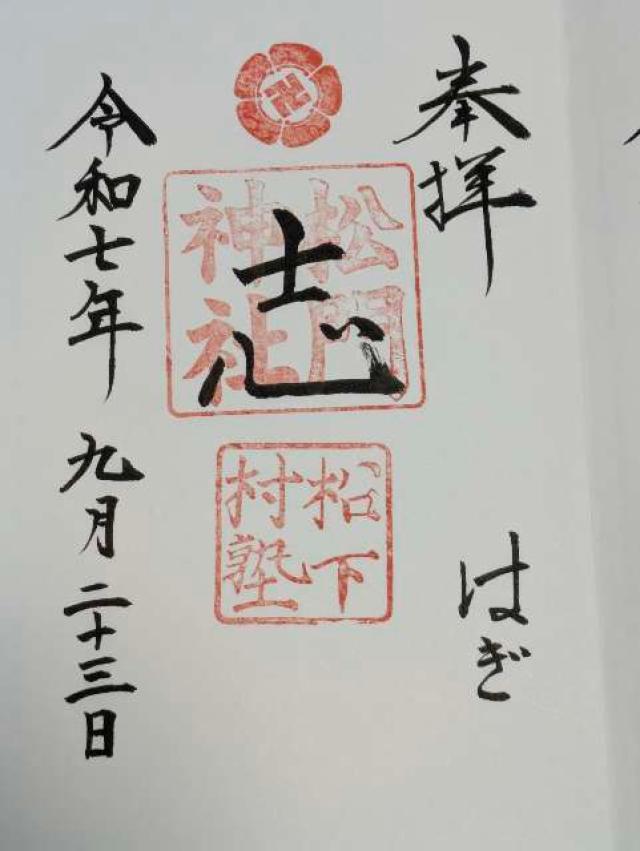 奉拝
はぎ
松門
神社
志
松下
村塾
令和七年 九月二十三日